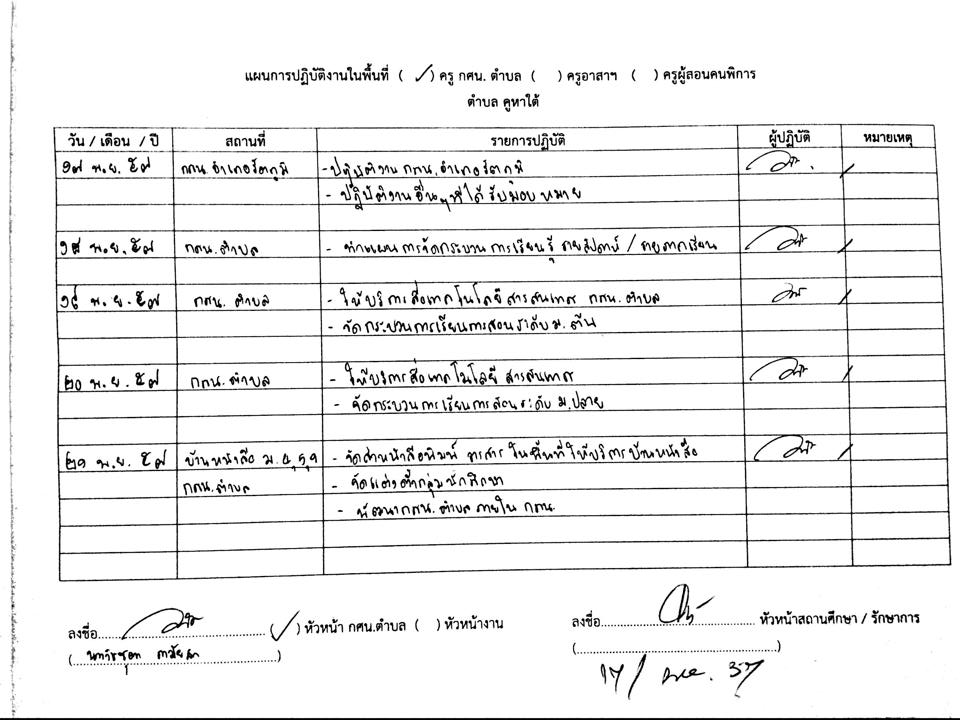 แผนการปฏิบัติงานในพื้นที่ ( ✓ ) ครู กศน. ตำบล ( ) ครูอาสาฯ ( ) ครูผู้สอนคนพิการ
ตำบล คูหาใต้
วัน / เดือน / ปี สถานที่ รายการปฏิบัติ ผู้ปฏิบัติ หมายเหตุ
๑๗ พ.ย. ๕๗ กศน.อำเภอรัตภูมิ - ปฏิบัติงาน กศน.อำเภอรัตภูมิ
- ปฏิบัติงานอื่นๆที่ได้รับมอบหมาย
๑๘ พ.ย. ๕๗ กศน.ตำบล - ทำแผนการจัดกระบวนการเรียนรู้ รายสัปดาห์ / รายภาคเรียน
๑๙ พ.ย. ๕๗ กศน. ตำบล - ให้บริการสื่อเทคโนโลยีสารสนเทศ กศน. ตำบล
- จัดกระบวนการเรียนการสอนระดับ ม.ต้น
๒๐ พ.ย. ๕๗ กศน.ตำบล - ให้บริการสื่อเทคโนโลยี สารสนเทศ
- จัดกระบวนการเรียนการสอนระดับ ม.ปลาย
๒๑ พ.ย. ๕๗ บ้านหนังสือ ม. - จัดส่งหนังสือพิมพ์ วารสาร ในพื้นที่ให้บริการบ้านหนังสือ
กศน.ตำบล - จัดแต่งตั้งกลุ่มนักศึกษา
- พัฒนากศน.ตำบล ภายใน กศน.
ลงชื่อ ( ✓ ) หัวหน้า กศน.ตำบล ( ) หัวหน้างาน
ลงชื่อ หัวหน้าสถานศึกษา / รักษาการ